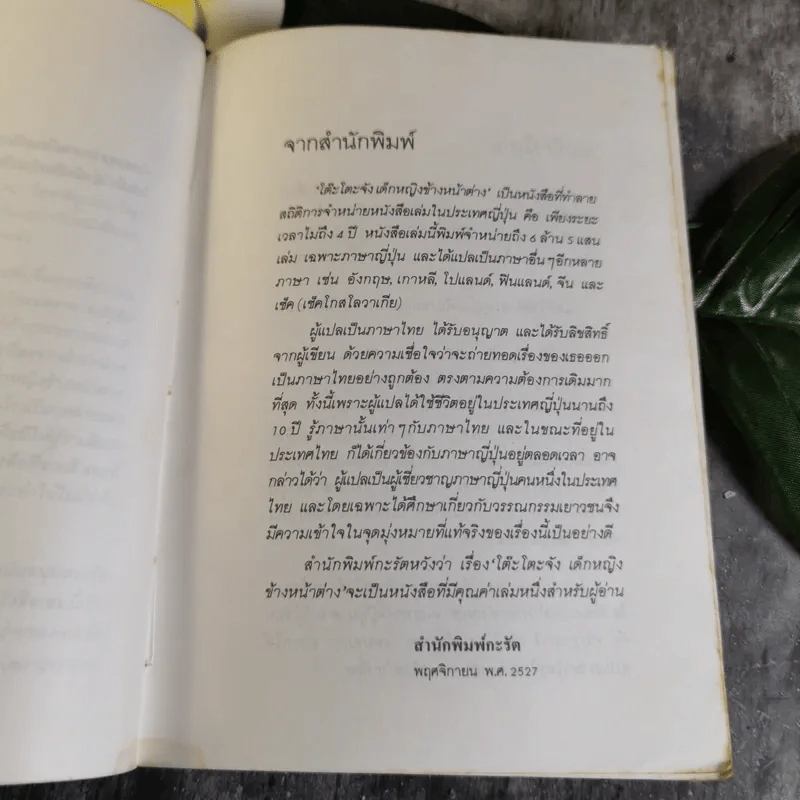 จากสำนักพิมพ์
'โต๊ะโตะจัง เด็กหญิงข้างหน้าต่าง' เป็นหนังสือที่ทำลาย
สถิติการจำหน่ายหนังสือเล่มในประเทศญี่ปุ่น คือ เพียงระยะ
เวลาไม่ถึง 4 ปี หนังสือเล่มนี้พิมพ์จำหน่ายถึง 6 ล้าน 5 แสน
เล่ม เฉพาะภาษาญี่ปุ่น และได้แปลเป็นภาษาอื่นๆอีกหลาย
ภาษา เช่น อังกฤษ, เกาหลี, โปแลนด์, ฟินแลนด์, จีน และ
เช็ค (เช็คโกสโลวาเกีย)
ผู้แปลเป็นภาษาไทย ได้รับอนุญาต และได้รับลิขสิทธิ์
จากผู้เขียน ด้วยความเชื่อใจว่าจะถ่ายทอดเรื่องของเธอออก
เป็นภาษาไทยอย่างถูกต้อง ตรงตามความต้องการเดิมมาก
ที่สุด ทั้งนี้เพราะผู้แปลได้ใช้ชีวิตอยู่ในประเทศญี่ปุ่นนานถึง
10 ปี รู้ภาษานั้นเท่าๆกับภาษาไทย และในขณะที่อยู่ใน
ประเทศไทย ก็ได้เกี่ยวข้องกับภาษาญี่ปุ่นอยู่ตลอดเวลา อาจ
กล่าวได้ว่า ผู้แปลเป็นผู้เชี่ยวชาญภาษาญี่ปุ่นคนหนึ่งในประเทศ
ไทย และโดยเฉพาะได้ศึกษาเกี่ยวกับวรรณกรรมเยาวชนจึง
มีความเข้าใจในจุดมุ่งหมายที่แท้จริงของเรื่องนี้เป็นอย่างดี
สำนักพิมพ์กะรัตหวังว่า เรื่อง'โต๊ะโตะจัง เด็กหญิง
ข้างหน้าต่าง'จะเป็นหนังสือที่มีคุณค่าเล่มหนึ่งสำหรับผู้อ่าน
สำนักพิมพ์กะรัต
พฤศจิกายน พ.ศ. 2527